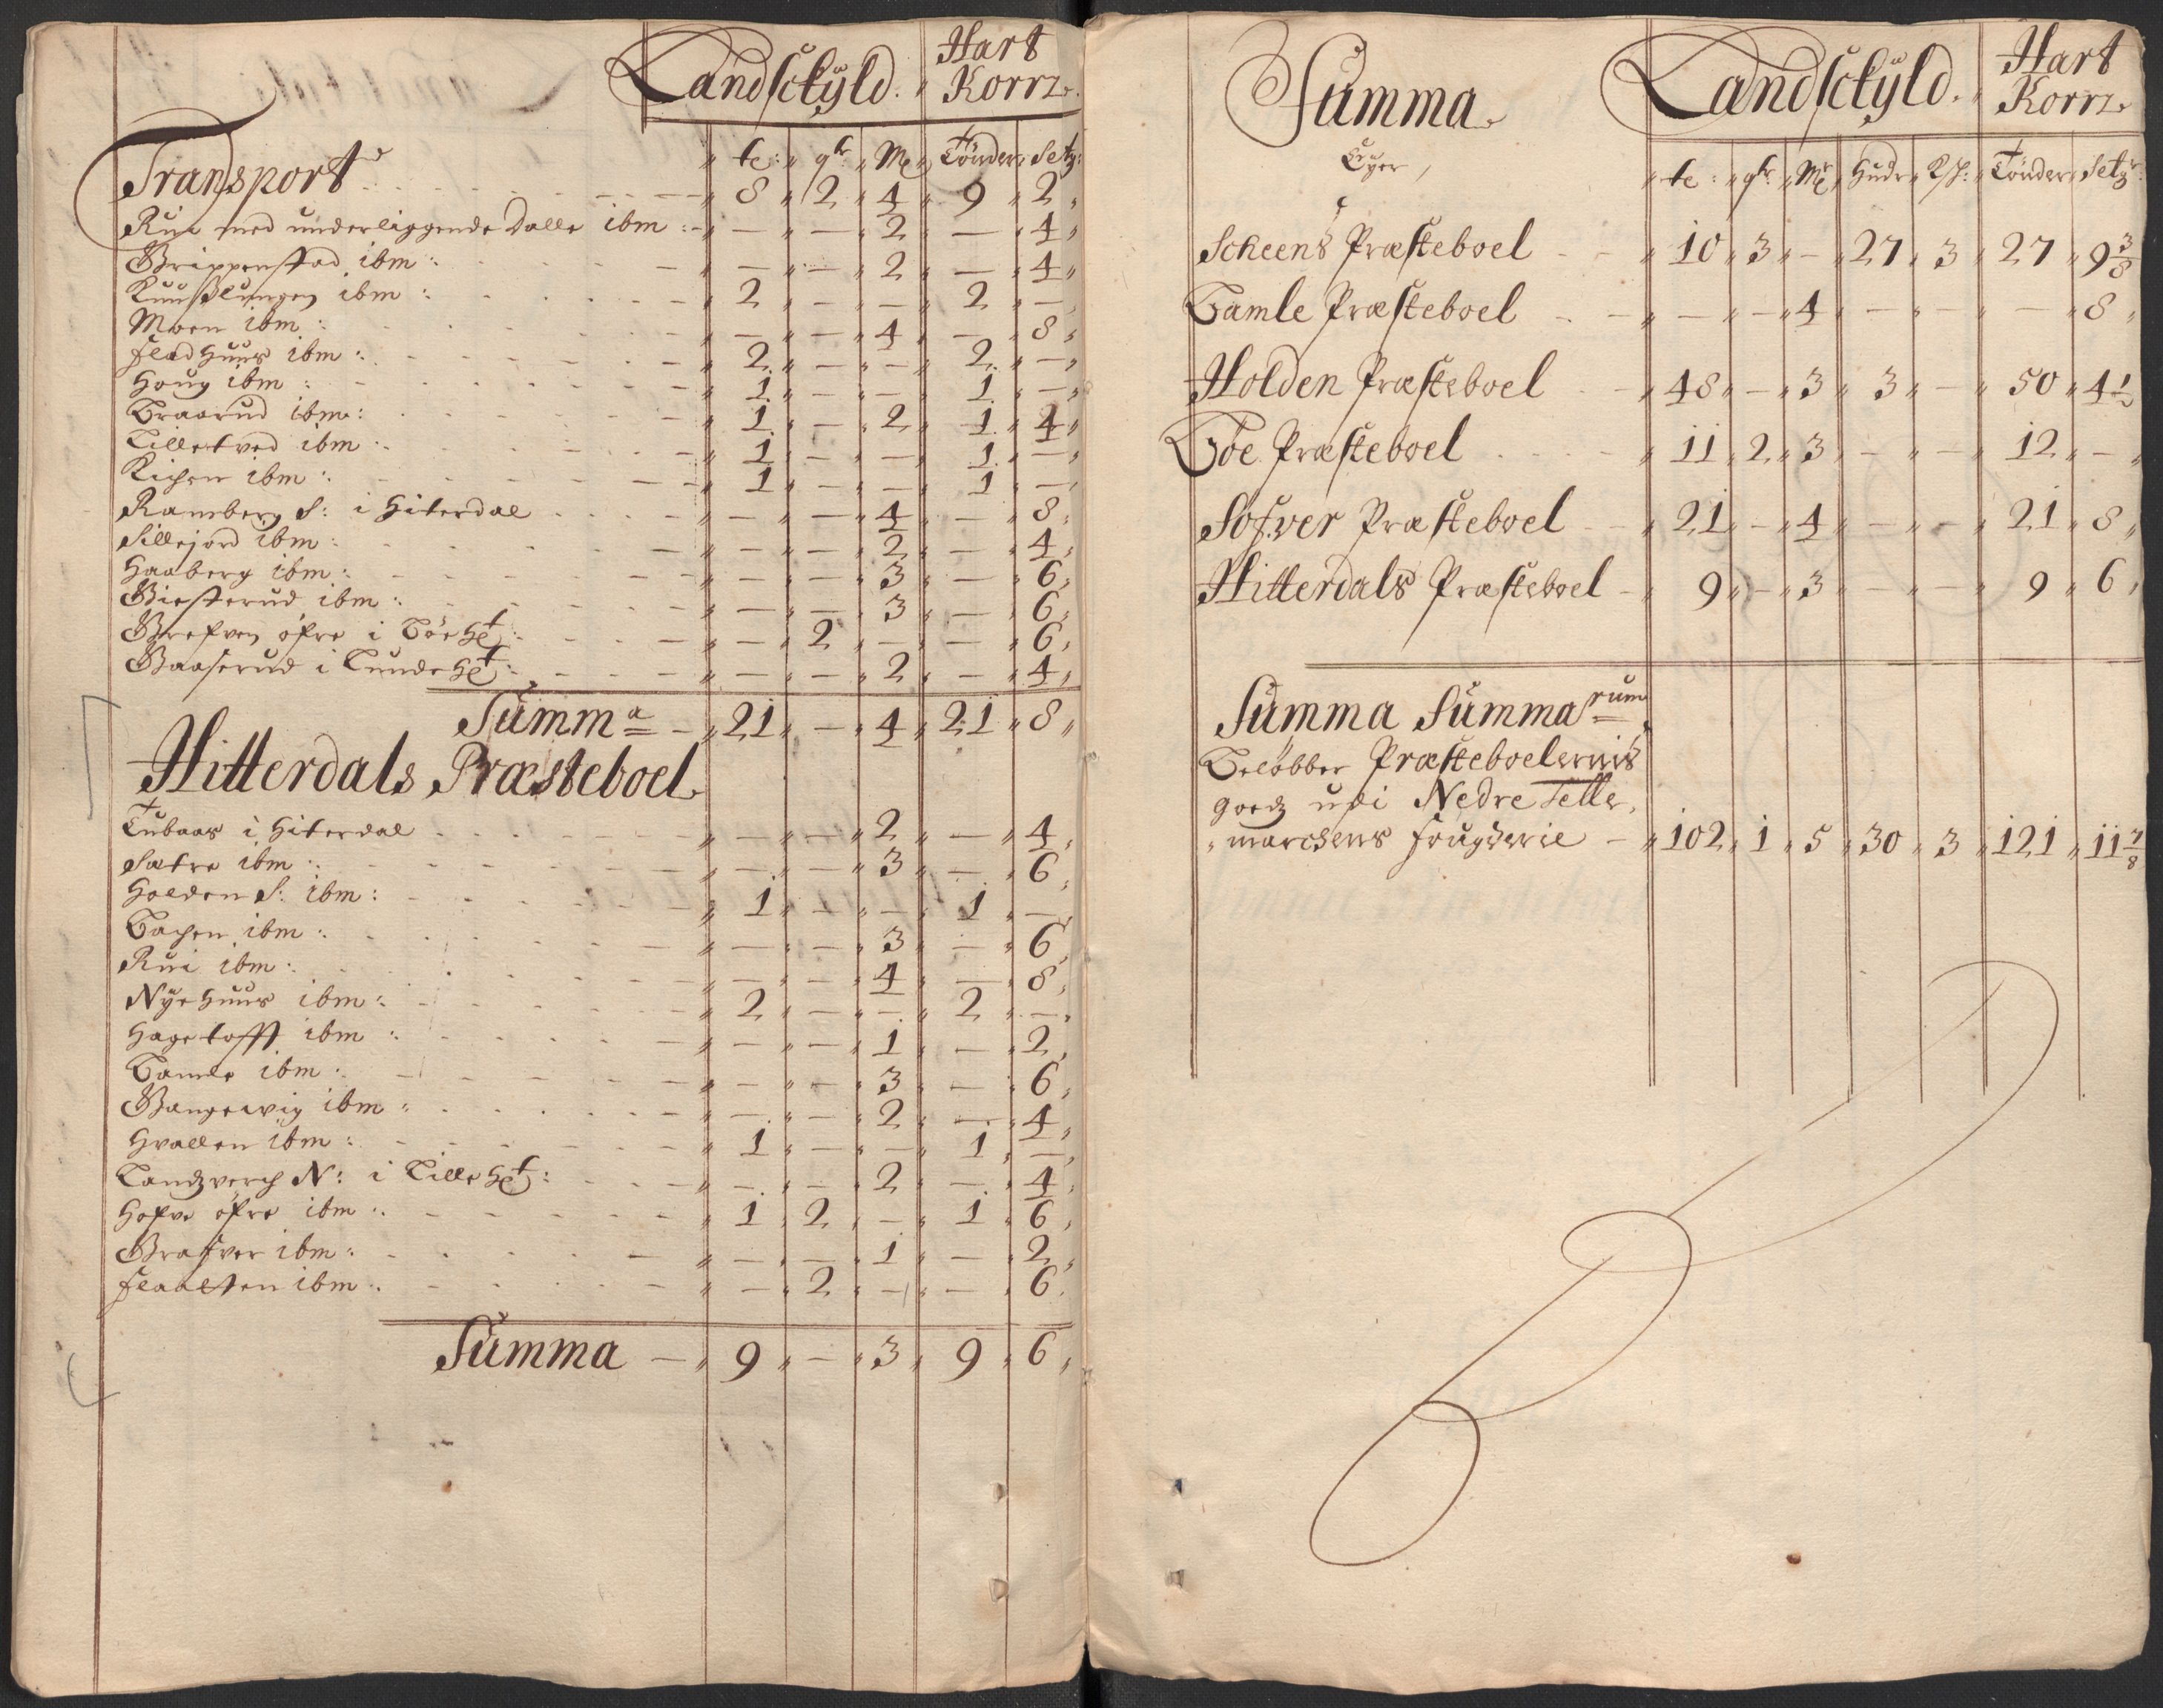 Landschÿld. Hart Korn
te: qr Mk Tönder Setg:
Transport 8 2 4 9 2
Rui med underliggende Dalle ibm: — — 2 — 4
Grippenstad ibm: — — 2 — 4
ibm: 2 — — 2 —
Moen ibm: — — 4 — 8
fladhuus ibm: 2 — — 2 —
Houg ibm: 1 — — 1 —
Braarud ibm: 1 — 2 1 4
Lilletved ibm: 1 — — 1 —
Kishen ibm: 1 — — 1 —
Ramberg S: i Hiterdal — — 4 — 8
Sillejord ibm: — — 2 — 4
Haaberg ibm: — — 3 — 6
Giesterud ibm: — — 3 — 6
Grefven öfre i Böe — 2 — — 6
Baaserud i Lunde — — 2 — 4
Summa 21 — 4 21 8
Hitterdals Præsteboel
Tubaas i Hiterdal — — 2 — 4
Sætre ibm: — — 3 — 6
Holden S: ibm: 1 — — 1 —
Bachen ibm: — — 3 — 6
Rui ibm: — — 4 — 8
Nÿehuus ibm: 2 — — 2 —
Hagetofft ibm: — — 1 — 2
Bamle ibm: — — 3 — 6
Gangewig ibm: — — 2 — 4
Hvallen ibm: 1 — — 1 —
Landzverch N: i Lille — — 2 — 4
Hofve öfre ibm: 1 2 — 1 6
Grafver ibm: — — 1 — 2
flaalten ibm: — 2 — — 6
Summa 9 — 3 9 6
Summa Landschÿld. Hart Korn
te: qr: Mk Hudr Tönder Setgr
Scheens Præsteboel 10 3 — 27 3 27 9 3/8
Bamle Præsteboel — — 4 — — — 8
Holden Præsteboel 48 — 3 3 — 50 4 1/2
Böe Præsteboel 11 2 3 — — 12 —
Sofver Præsteboel 21 — 4 — — 21 8
Hitterdals Præsteboel 9 — 3 — — 9 6
Summa Summarum
Belöbber Præsteboelernis
goedz udi Nedre Telle
marchens fougderie 102 1 5 30 3 121 11 7/8